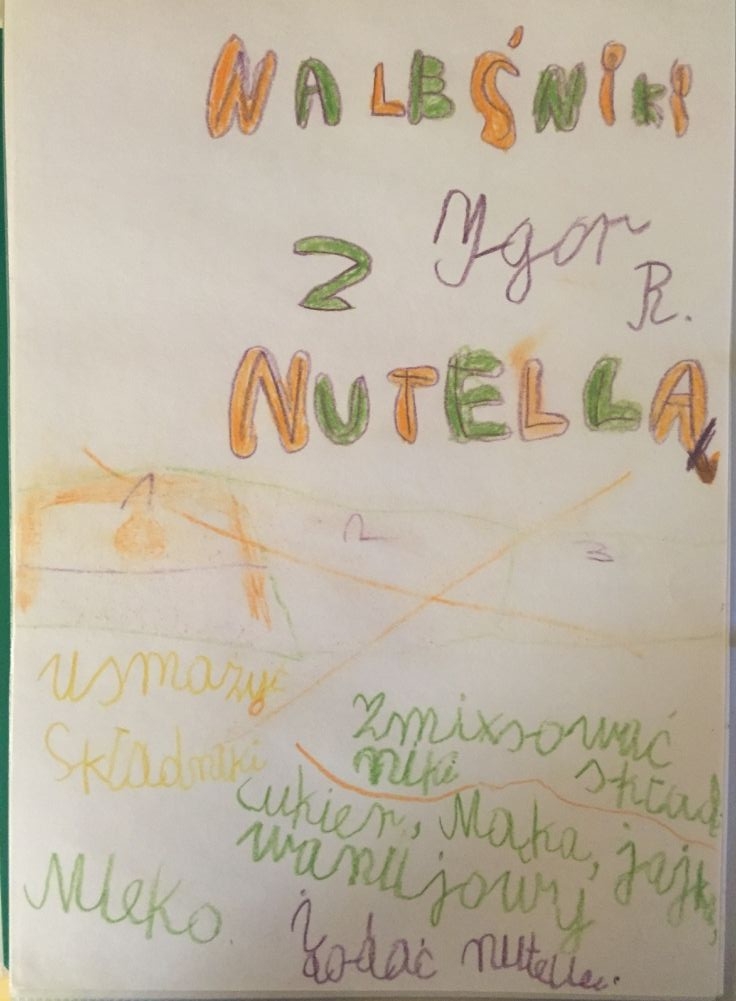 NALEŚNIKI
Z Igor
R.
NUTELLĄ
1 2 3
usmażyć
Składniki
Zmixsować
niki skład
cukier, Mąka, jajka,
wanilijowy
Mleko.
i dodać nutelle.